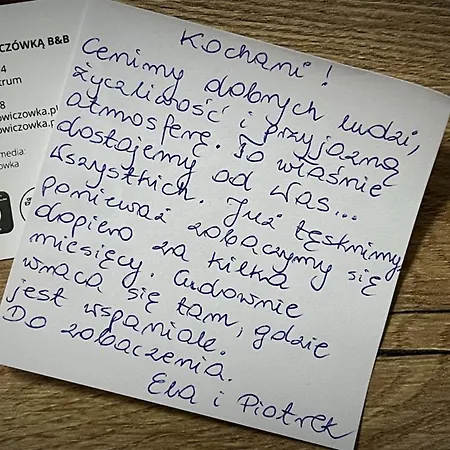 CZÓWKĄ B&B
4
trum
8
owiczowka.pl
owiczowka.p
media:
owka
Kochani!
Cenimy dobrych ludzi,
życzliwość i przyjazną
atmosferę. To właśnie
dostajemy od Was...
Wszystkich. Już tęsknimy,
ponieważ zobaczymy się
dopiero za kilka
miesięcy. Cudownie
wraca się tam, gdzie
jest wspaniale.
Do zobaczenia.
Ela i Piotrek